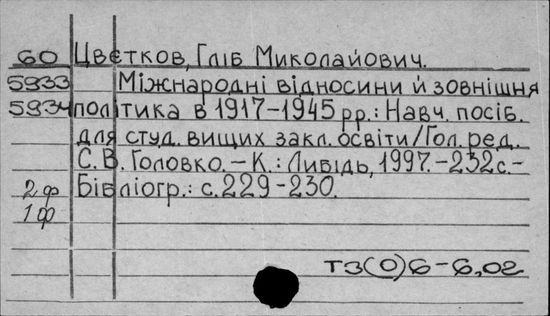 60 Цвєтков, Гліб Миколайович.
5933 Міжнародні відносини й зовнішня
5934 політика в 1917-1945 рр.: Навч. посіб.
для студ. вищих закл. освіти/Гол. ред.
С.В. Головко. - К.: Либідь, 1997. - 232 с. -
2ф Бібліогр.: с. 229-230.
1ф
Т3(0)6-6,02